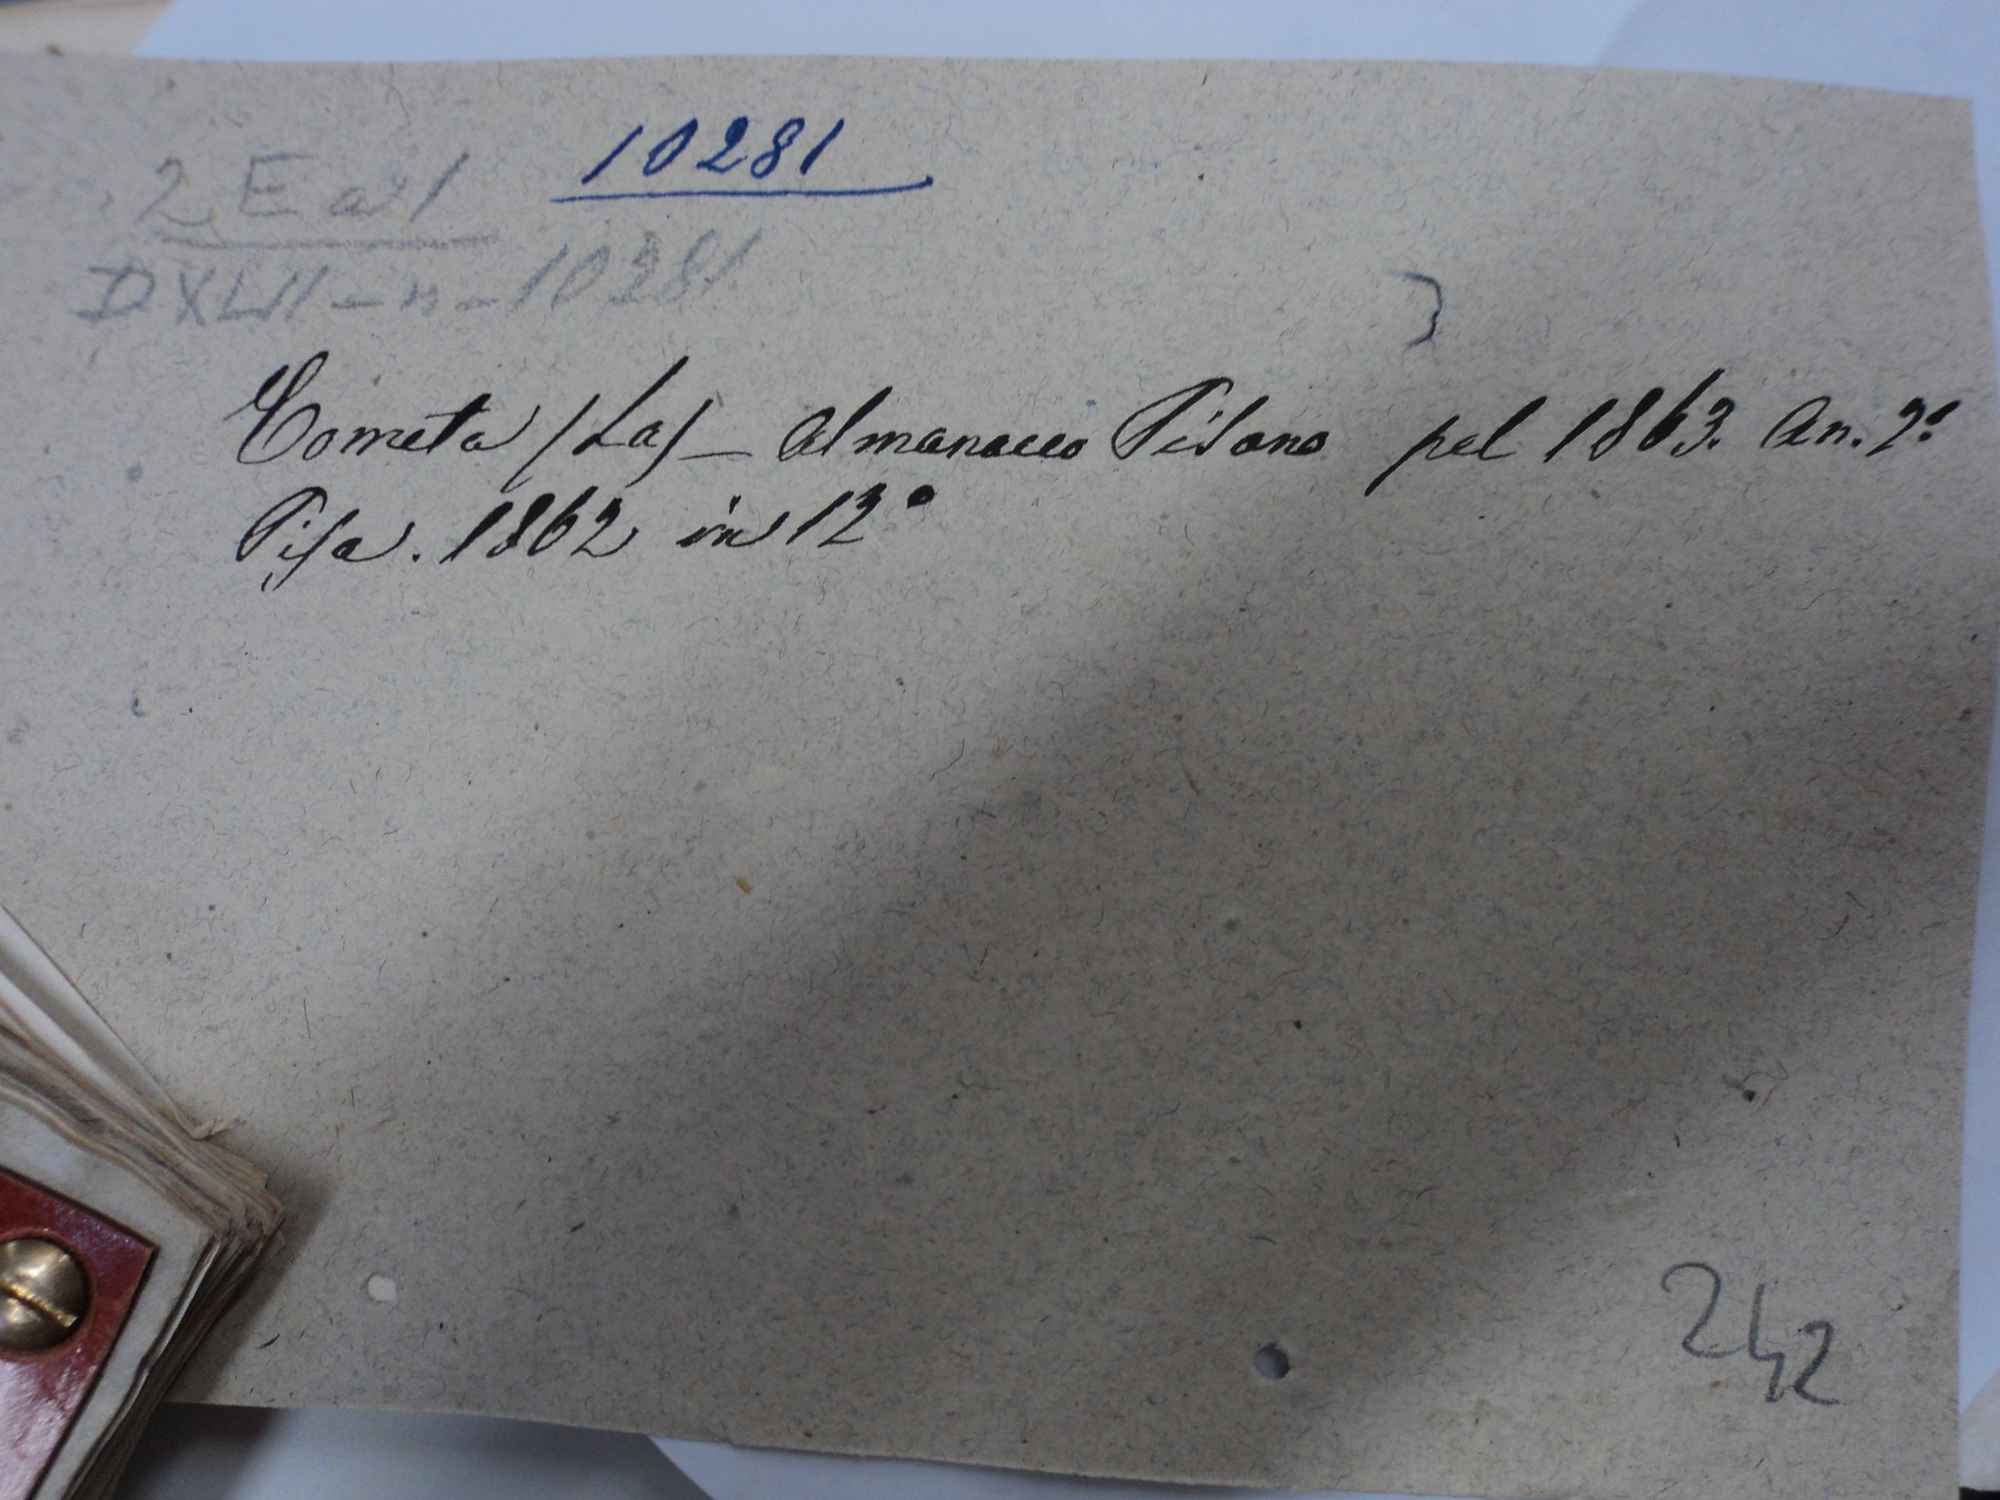 10281
2 E a 1
DXLVII - n - 10281
Cometa (La) - Almanacco Pisano pel 1863. An. 2º
Pisa. 1862 in 12º
242